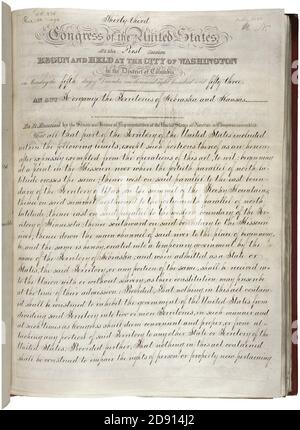 Thirty third
Congress of the United States,
At the First Session
BEGUN AND HELD AT THE CITY OF WASHINGTON
in the District of Columbia
on Monday the fifth day of December one thousand eight hundred and fifty three.
AN ACT To organize the Territories of Nebraska and Kansas.
Be It Enacted by the Senate and House of Representatives of the United States of America in Congress assembled,
That all that part of the Territory of the United States included
within the following limits, except such portions thereof as are herein-
after expressly exempted from the operations of this act, to wit: beginning
at a point in the Missouri river where the fortieth parallel of north
latitude crosses the same; thence west on said parallel to the east boun-
dary of the Territory of Utah, on the summit of the Rocky Mountains;
thence on said summit northward to the forty-ninth parallel of north
latitude; thence east on said parallel to the western boundary of the Ter-
ritory of Minnesota; thence southward on said boundary to the Missouri
river; thence down the main channel of said river to the place of beginning,
be, and the same is hereby, created into a temporary government by the
name of the Territory of Nebraska; and when admitted as a State or
States, the said Territory, or any portion of the same, shall be received in-
to the Union with or without slavery, as their constitution may prescribe
at the time of their admission: Provided, That nothing in this act contain-
ed shall be construed to inhibit the government of the United States from
dividing said Territory into two or more Territories, in such manner and
at such times as Congress shall deem convenient and proper, or from at-
taching any portion of said Territory to any other State or Territory of the
United States: Provided further, That nothing in this act contained
shall be construed to impair the rights of person or property now pertaining
alamy
Image ID: 2D914J2
www.alamy.com